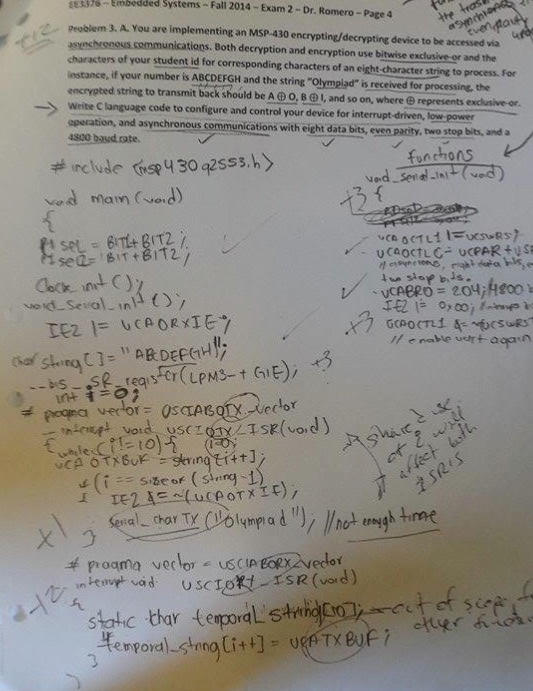 EE3376 – Embedded Systems – Fall 2014 – Exam 2 – Dr. Romero – Page 4
+12
the trash
asynchronous
even parity
Problem 3. A. You are implementing an MSP-430 encrypting/decrypting device to be accessed via
asynchronous communications. Both decryption and encryption use bitwise exclusive-or and the
characters of your student id for corresponding characters of an eight-character string to process. For
instance, if your number is ABCDEFGH and the string "Olympiad" is received for processing, the
encrypted string to transmit back should be A ⊕ O, B ⊕ l, and so on, where ⊕ represents exclusive-or.
Write C language code to configure and control your device for interrupt-driven, low-power
operation, and asynchronous communications with eight data bits, even parity, two stop bits, and a
4800 baud rate.
#include <msp430g2553.h>
void main(void)
{
P1sel = BIT1+BIT2;
P1sel2= BIT+BIT2;
Clock_init();
void_Serial_init();
IE2 |= UCA0RXIE;
char string[]="ABCDEFGH";
--bis_SR_register(LPM3-+GIE); +3
int i=0;
# pragma vector= USCIAB0TX_vector
_interrupt void USCI0TX_ISR(void)
{ while(i!=10){ i=0;
UCA0TXBUF = string[i++];
if(i == sizeof(string-1)
{ IE2 &= ~(UCA0TXIF);
Serial_charTX("Olympiad"); //not enough time
}
x1
# pragma vector = USCIAB0RX_vector
interrupt void USCI0RX_ISR(void)
x2
{
static char temporal_string[10]; out of scope
other
temporal_string[i++] = UCATXBUF;
}
}
functions
void_serial_init(void)
+3 {
UCA0CTL1 |=UCSWRST
UCA0CTLC= UCPAR+
// asynchronous, eight data bits,
two stop bits.
UCABR0 = 204; //4800
IE2 |= 0x00; //
+3 UCA0CTL1 &=~UCSWRST
// enable uart again
share & use
of i will
affect both
ISR'S